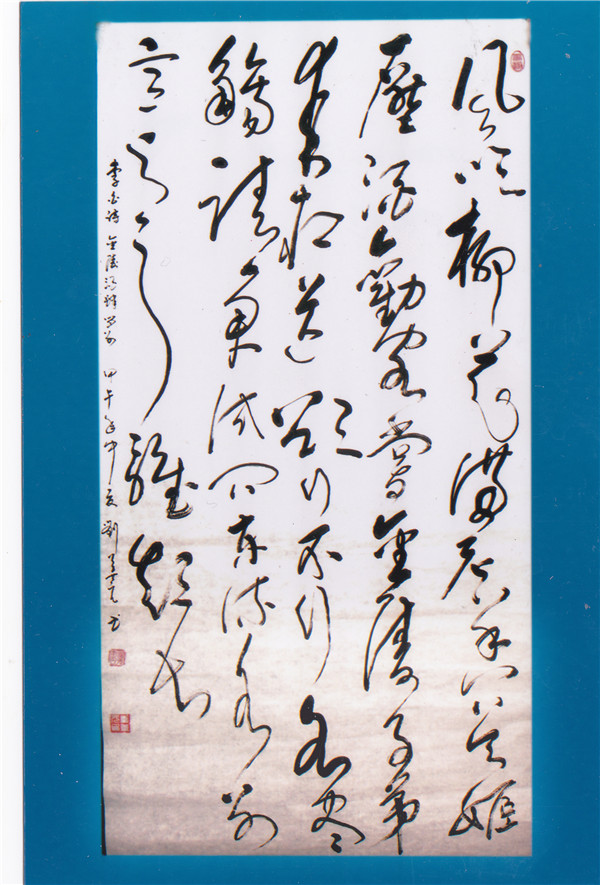 風吹柳花滿店香吴姬
壓酒勸客嘗金陵子弟
來相送欲行不行各盡
觴請君試问東流水别
意與之誰短长
李白诗 金陵酒肆留别 甲午年中夏 劉 书